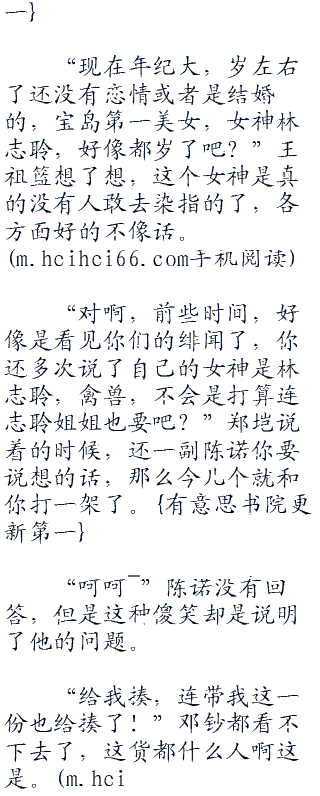 一}
“现在年纪大，岁左右
了还没有恋情或者是结婚
的，宝岛第一美女，女神林
志聆，好像都岁了吧？”王
祖篮想了想，这个女神是真
的没有人敢去染指的了，各
方面好的不像话。
(m.hcihci66.com手机阅读)
“对啊，前些时间，好
像是看见你们的绯闻了，你
还多次说了自己的女神是林
志聆，禽兽，不会是打算连
志聆姐姐也要吧？”郑垲说
着的时候，还一副陈诺你要
说想的话，那么今儿个就和
你打一架了。{有意思书院更
新第一}
“呵呵~”陈诺没有回
答，但是这种傻笑却是说明
了他的问题。
“给我揍，连带我这一
份也给揍了！”邓钞都看不
下去了，这货都什么人啊这
是。(m.hci